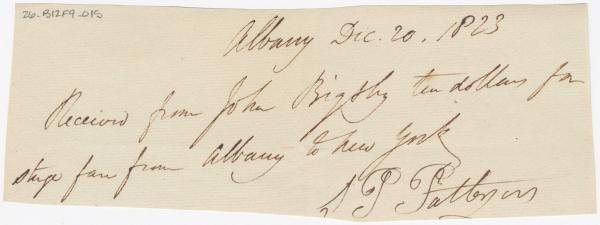 26-B12F9-015
Albany Dec. 20. 1823
Received from John Bigsby ten dollars for
stage fare from Albany to New York
P Patterson